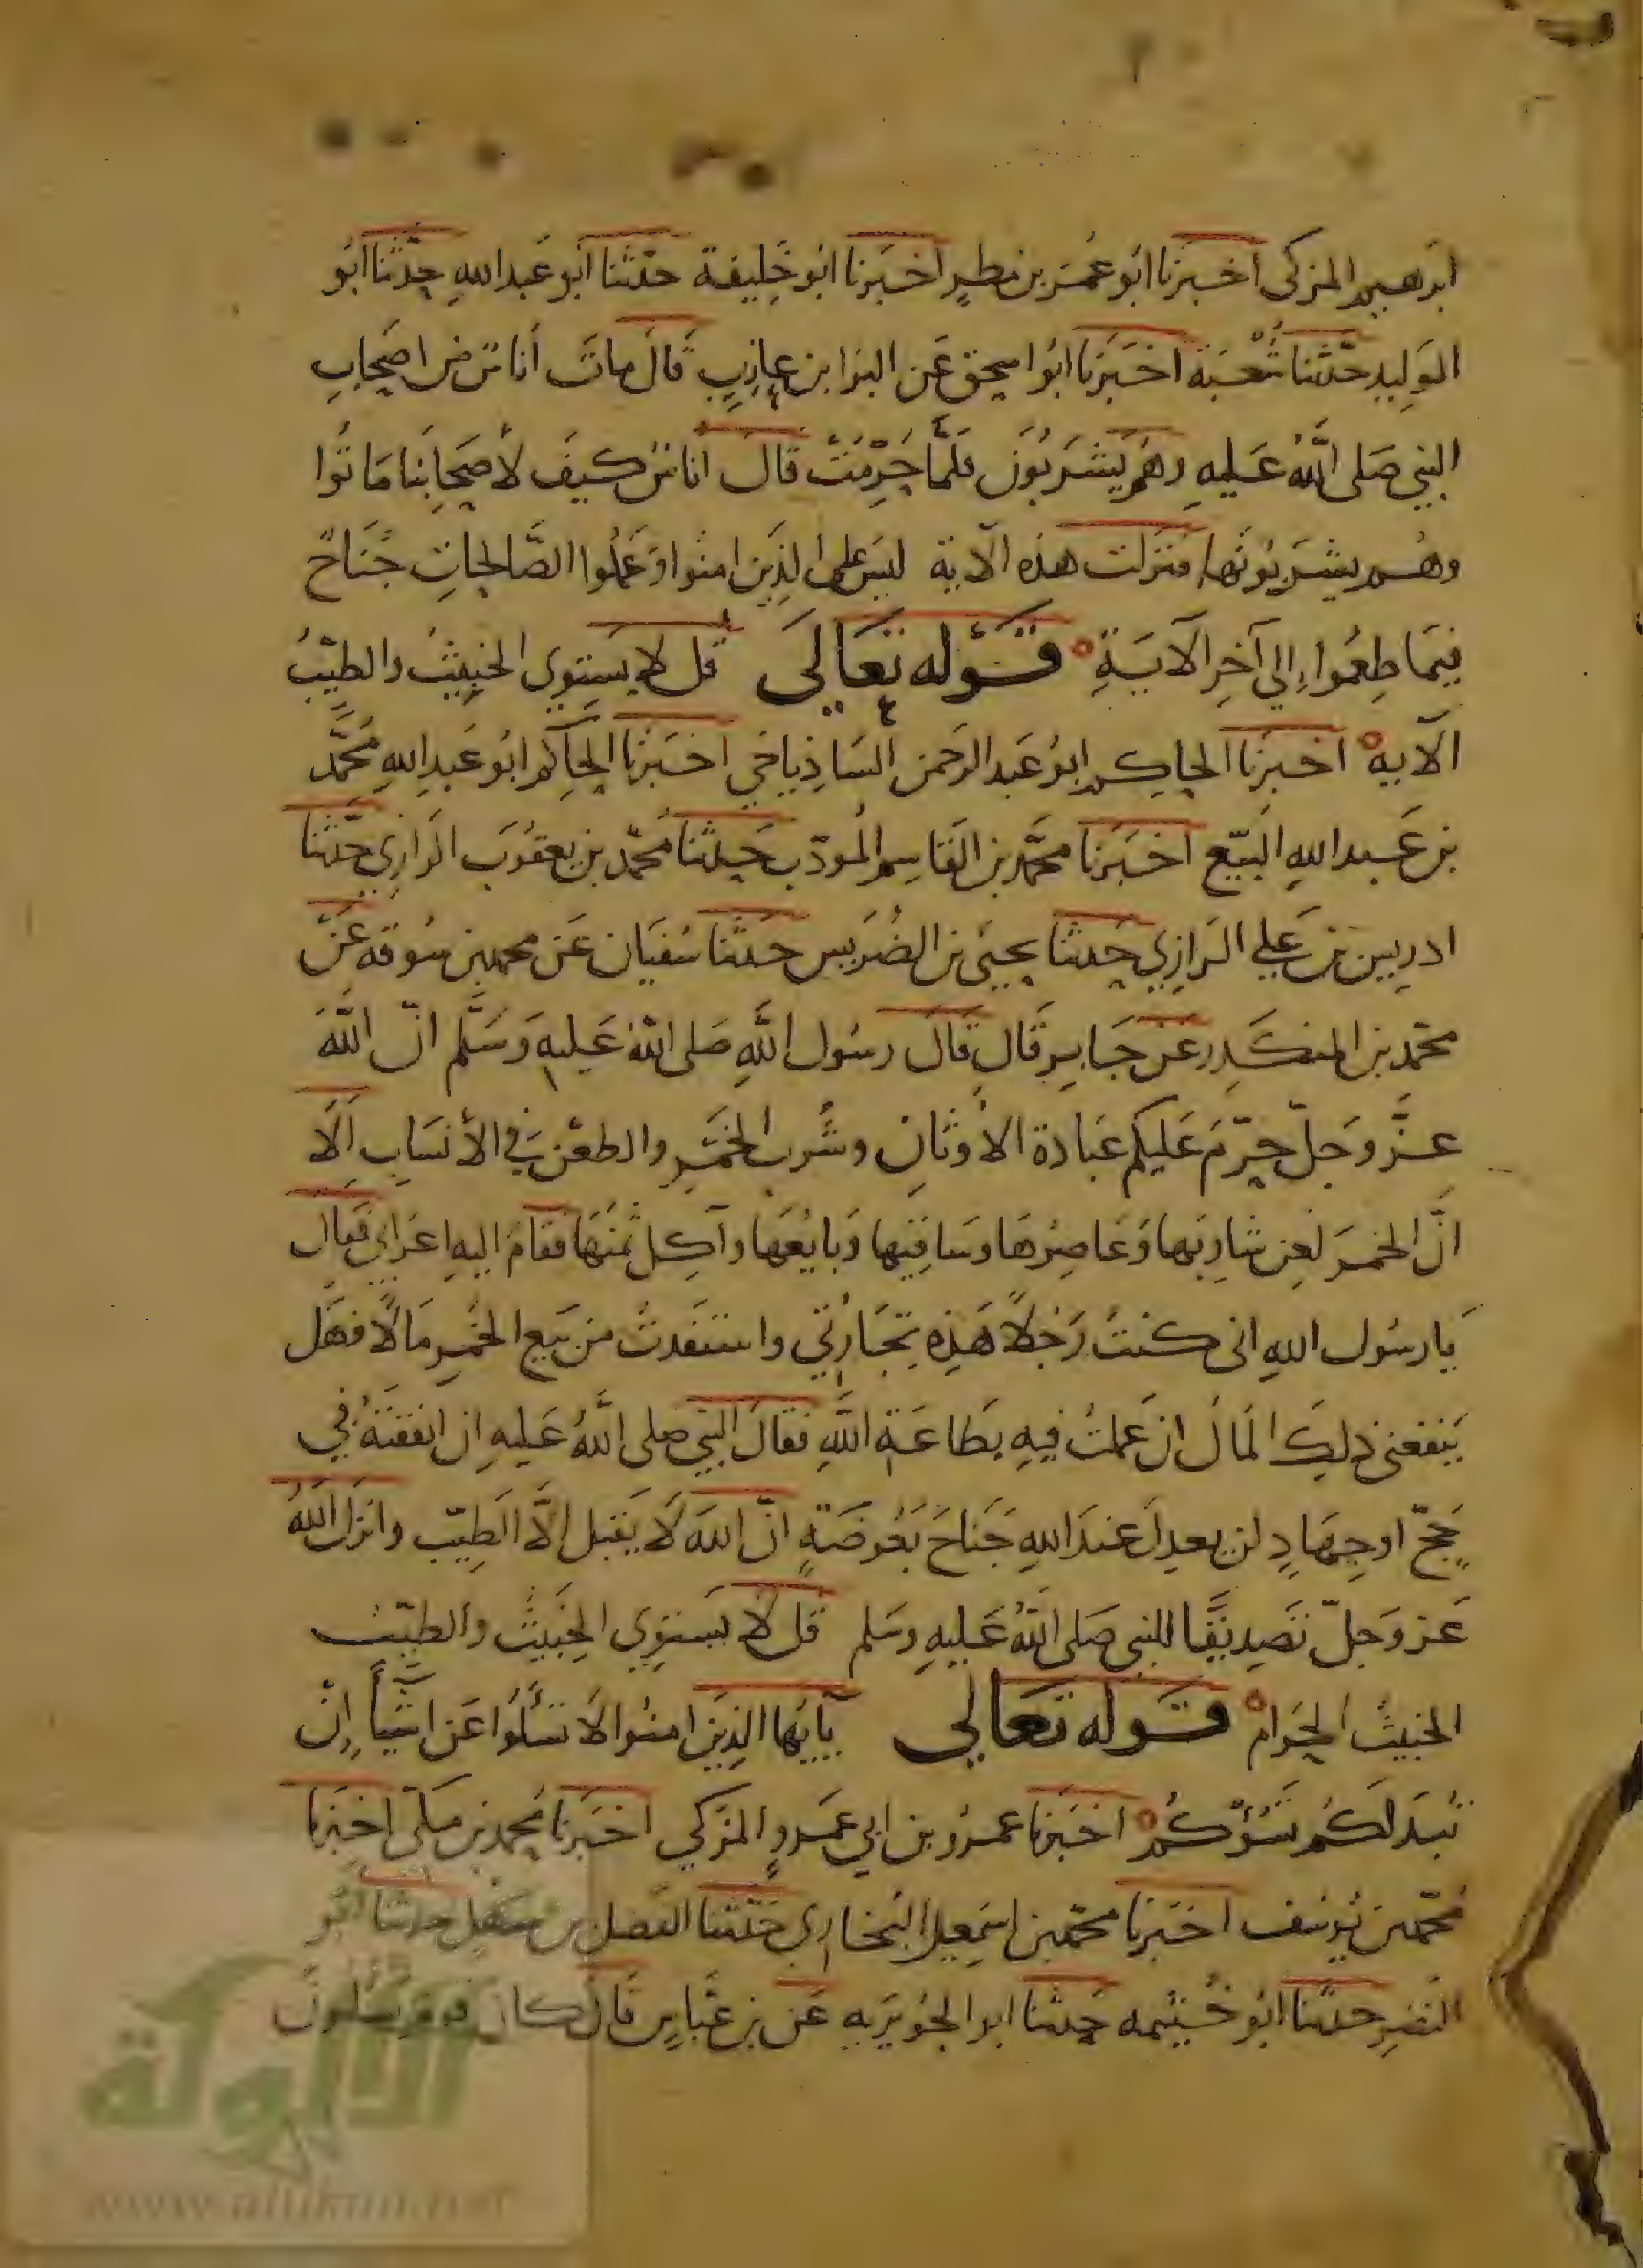 ابرهيم المزكى اخبرنا ابو عمر بن مطر اخبرنا ابو خليفة حدثنا ابو عبد الله حدثنا ابو
الوليد حدثنا شعبة اخبرنا ابوا سحق عن البرا بن عازب قال مات أناس من اصحاب
النبي صلى الله عليه وهم يشربون فلما حرمت قال اناس كيف لأصحابنا ماتوا
وهم يشربونها فنزلت هذه الآية ليس على الذين امنوا وعملوا الصالحات جناح
فيما طعموا إلى آخر الآية قوله تعالى قل لا يستوي الخبيث والطيب
الآية اخبرنا الحاكم ابو عبد الرحمن الشاذياخي اخبرنا الحاكم ابو عبد الله محمد
بن عبد الله البيع اخبرنا محمد بن القاسم المودب حدثنا محمد بن يعقوب الرازي حدثنا
ادريس بن علي الرازي حدثنا يحيى بن الضريس حدثنا سفيان عن محمد بن سوقه عن
محمد بن المنكدر عن جابر قال قال رسول الله صلى الله عليه وسلم ان الله
عز وجل حرم عليكم عبادة الأوثان وشرب الخمر والطعن في الأنساب الا
ان الخمر لعن شاربها وعاصرها وساقيها وبايعها وآكل ثمنها فقام اليه اعرابي فقال
يا رسول الله انى كنت رجلا هذه تجارتي واستفدت من بيع الخمر مالا فهل
ينفعنى ذلك المال ان عملت فيه بطاعة الله فقال النبي صلى الله عليه ان انفقته في
حج او جهاد لن يعدل عند الله جناح بعوضة ان الله لا يقبل الا الطيب وانزل الله
عز وجل تصديقا للنبى صلى الله عليه وسلم قل لا يستوي الخبيث والطيب
الخبيث الحرام قوله تعالى يأيها الذين امنوا لا تسئلوا عن اشيأ إن
تبد لكم تسؤكم اخبرنا عمرو بن ابي عمرو المزكي اخبرنا محمد بن مكى اخبرنا
محمد بن يوسف اخبرنا محمد بن اسمعيل البخاري حدثنا الفضل بن سهل حدثنا ابو
النضر حدثنا ابو خيثمه حدثنا ابو الجويريه عن بن عباس قال كان قوم يسئلون
الألوكة
www.alukah.net